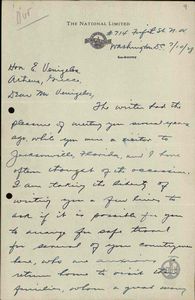 THE NATIONAL LIMITED
#714 Fifth St N.W
Washington DC 7/10/29
En Route
Hon. E Venizelos
Athens, Greece,
Dear Mr Venizelos,
The writer had the
pleasure of meeting you several years
ago, while you were a visitor to
Jacksonville, Florida, and I have
often thought of the occasion.
I am taking the liberty of
writing you a few lines to
ask if it is possible for you
to arrange for safe travel
for several of your countrymen
here, who are anxious to
return home to visit their
families, whom a great many